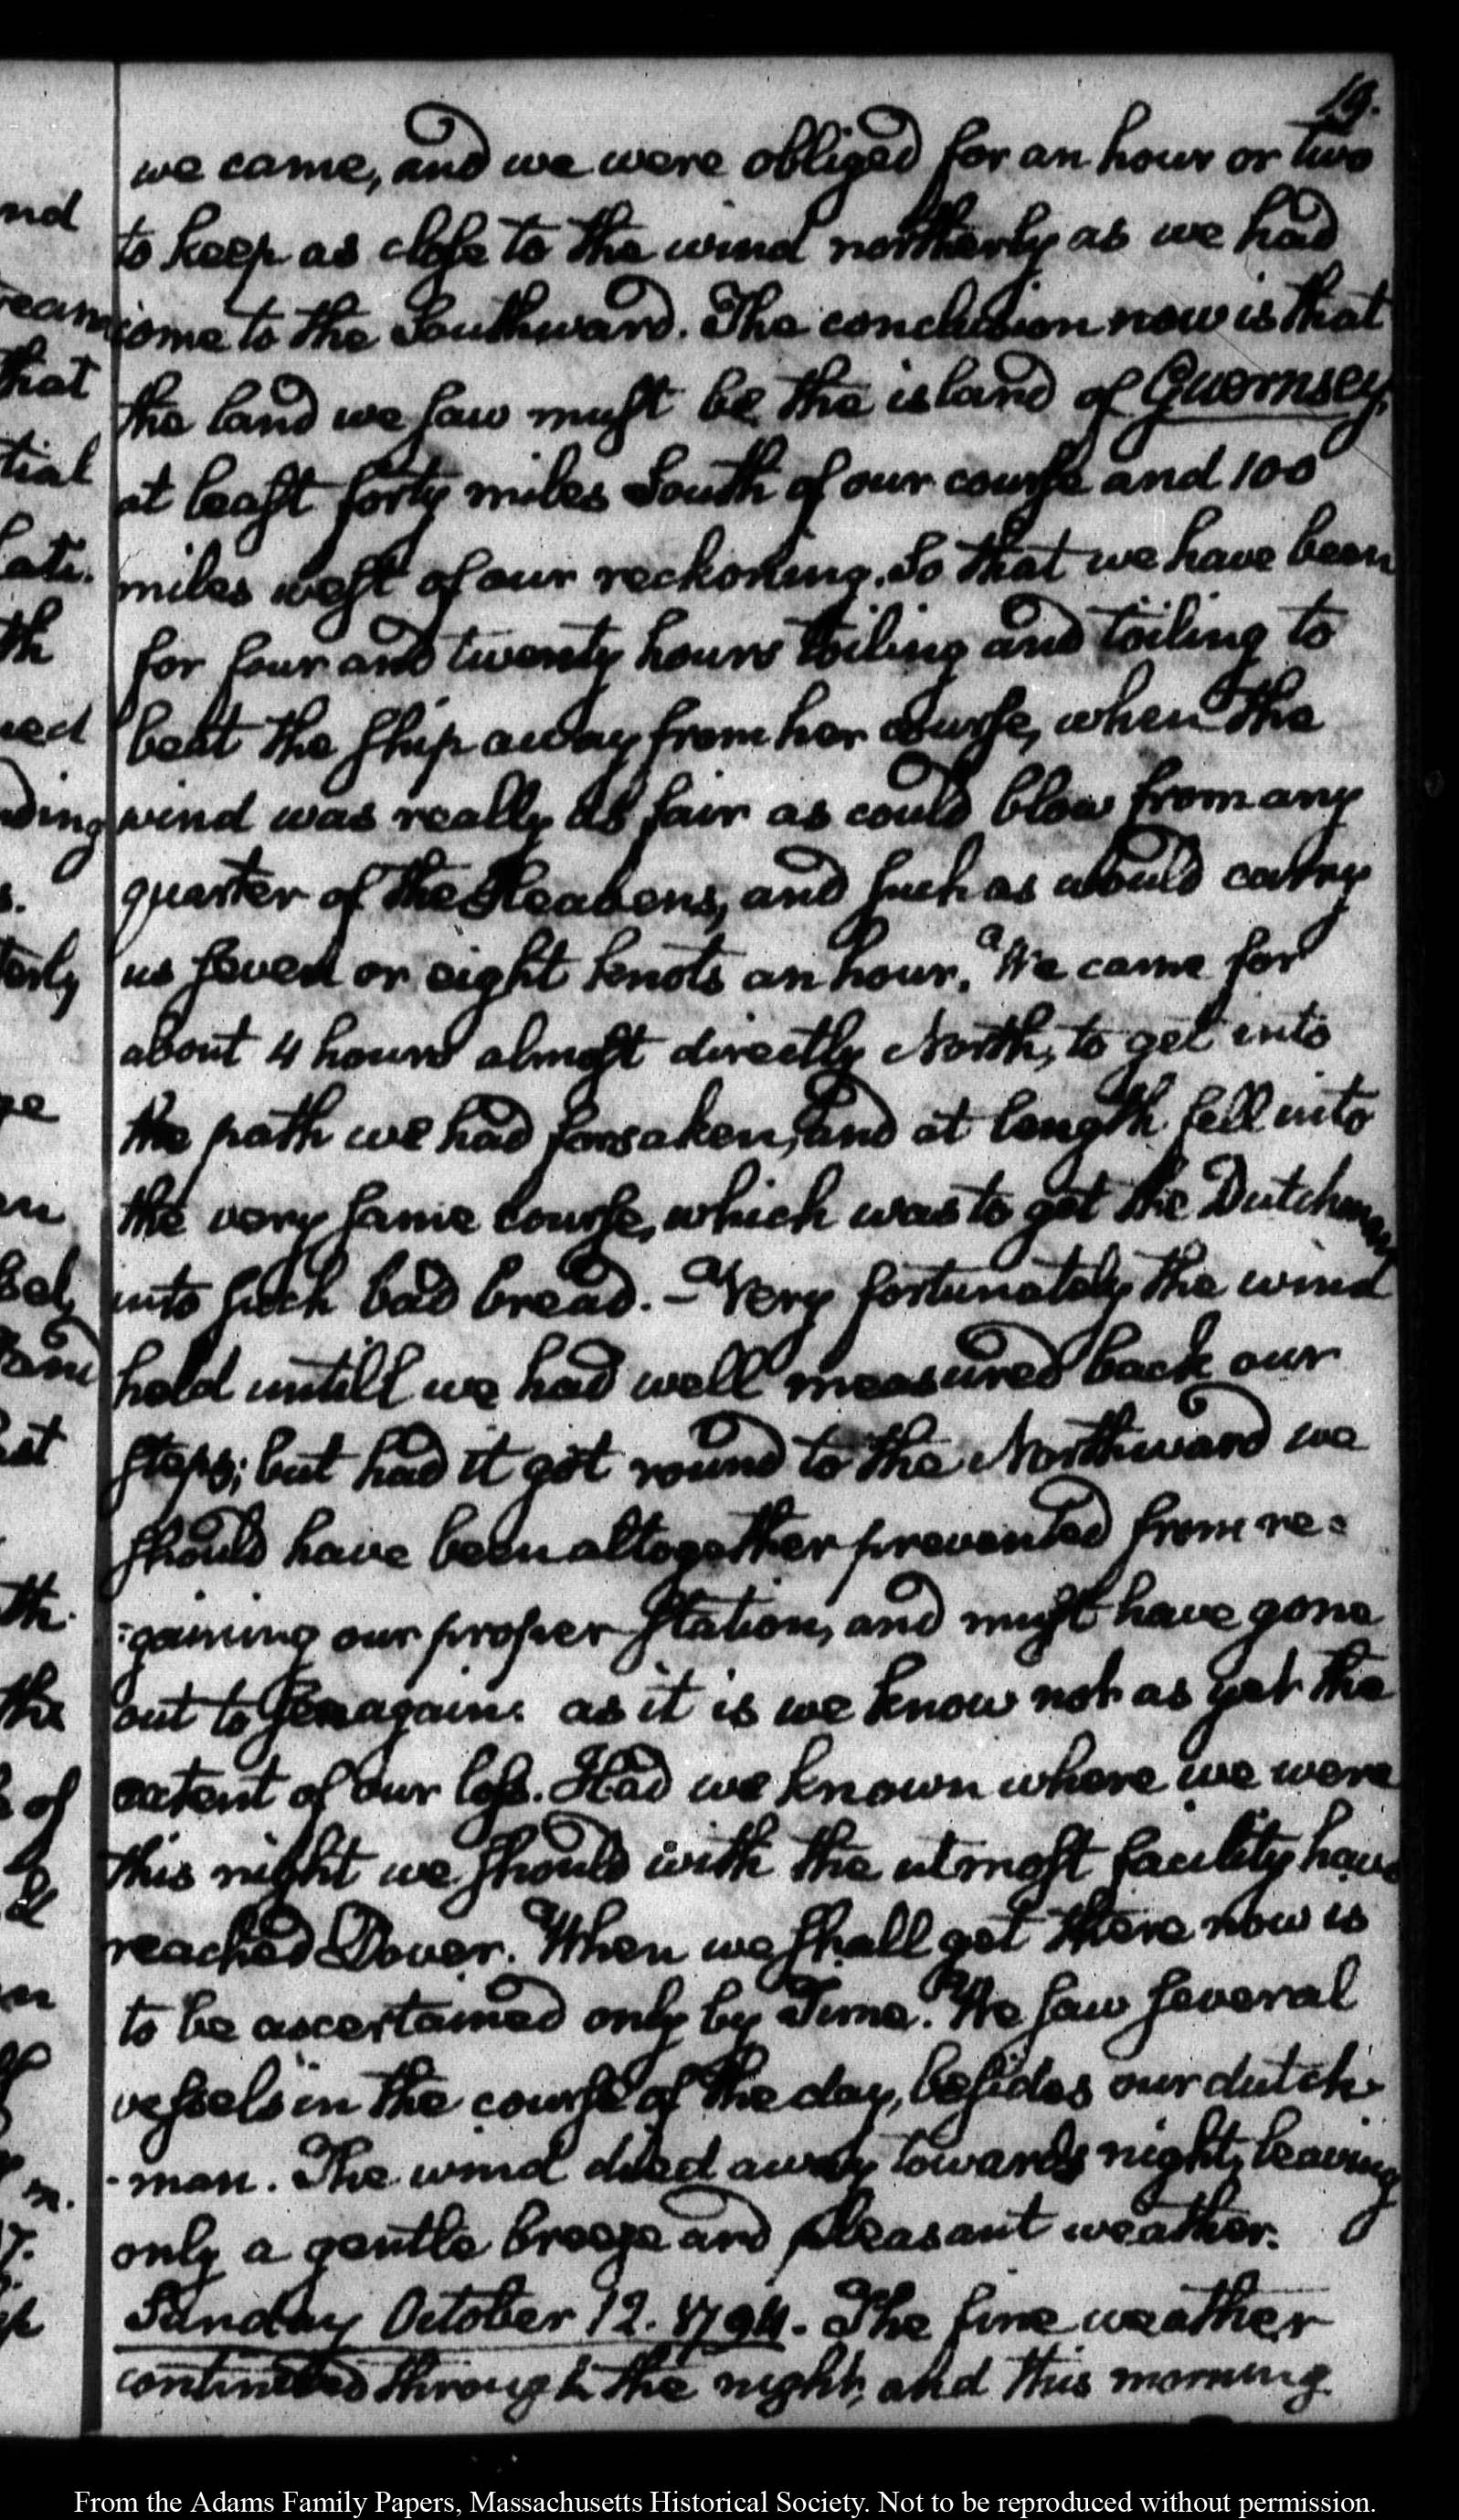 19.
we came, and we were obliged for an hour or two
nd
to keep as close to the wind northerly as we had
come to the Southward. The conclusion now is that
that
the land we saw must be the island of Guernsey,
tial
at least forty miles South of our course and 100
miles west of our reckoning. So that we have been
th
for four and twenty hours toiling and toiling to
beat the ship away from her course, when the
ding
wind was really as fair as could blow from any
quarter of the Heavens, and such as would carry
s.
us seven or eight knots an hour. We came for
terly
about 4 hours almost directly North, to get into
the path we had forsaken, and at length fell into
the very same course, which was to get the Dutchman
into such bad bread. - Very fortunately the wind
held untill we had well measured back our
steps; but had it got round to the Northward we
should have been altogether prevented from re=
=gaining our proper station, and must have gone
th.
out to Sea again. as it is we know not as yet the
the
extent of our loss. Had we known where we were
of
this night we should with the utmost facility have
reached Dover. When we shall get there now is
to be ascertained only by Time. We saw several
vessels in the course of the day, besides our dutch-
-man. The wind died away towards night, leaving
only a gentle breeze and pleasant weather.
Sunday October 12. 1794. The fine weather
continued through the night, and this morning
From the Adams Family Papers, Massachusetts Historical Society. Not to be reproduced without permission.